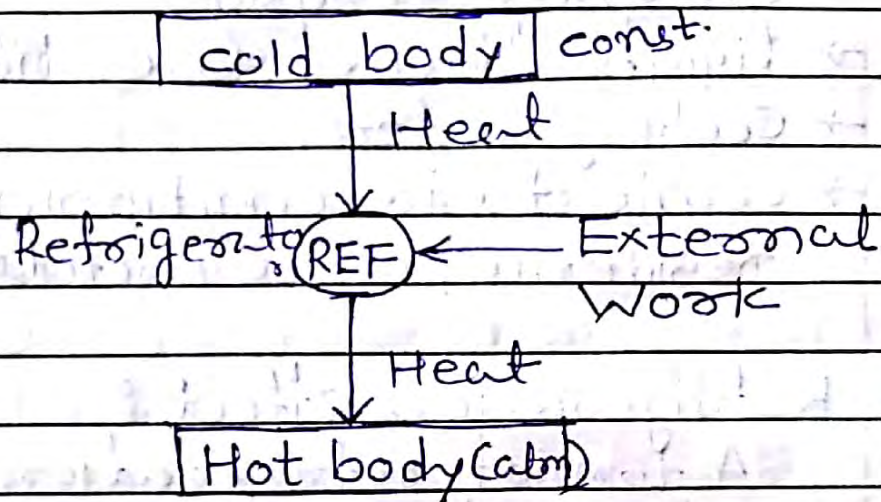 cold body const.
Heat
Refrigerator REF External
Work
Heat
Hot body (atm)